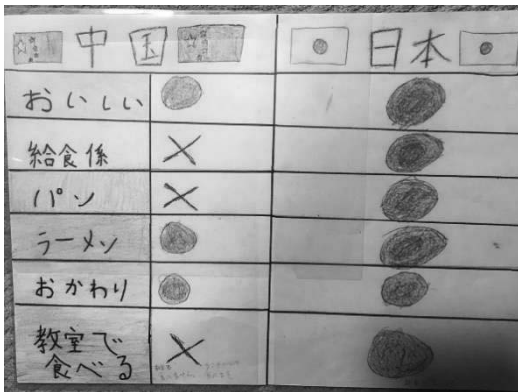 中国 日本
おいしい
給食係 ×
パン ×
ラーメン
おかわり
教室で ×
食べる